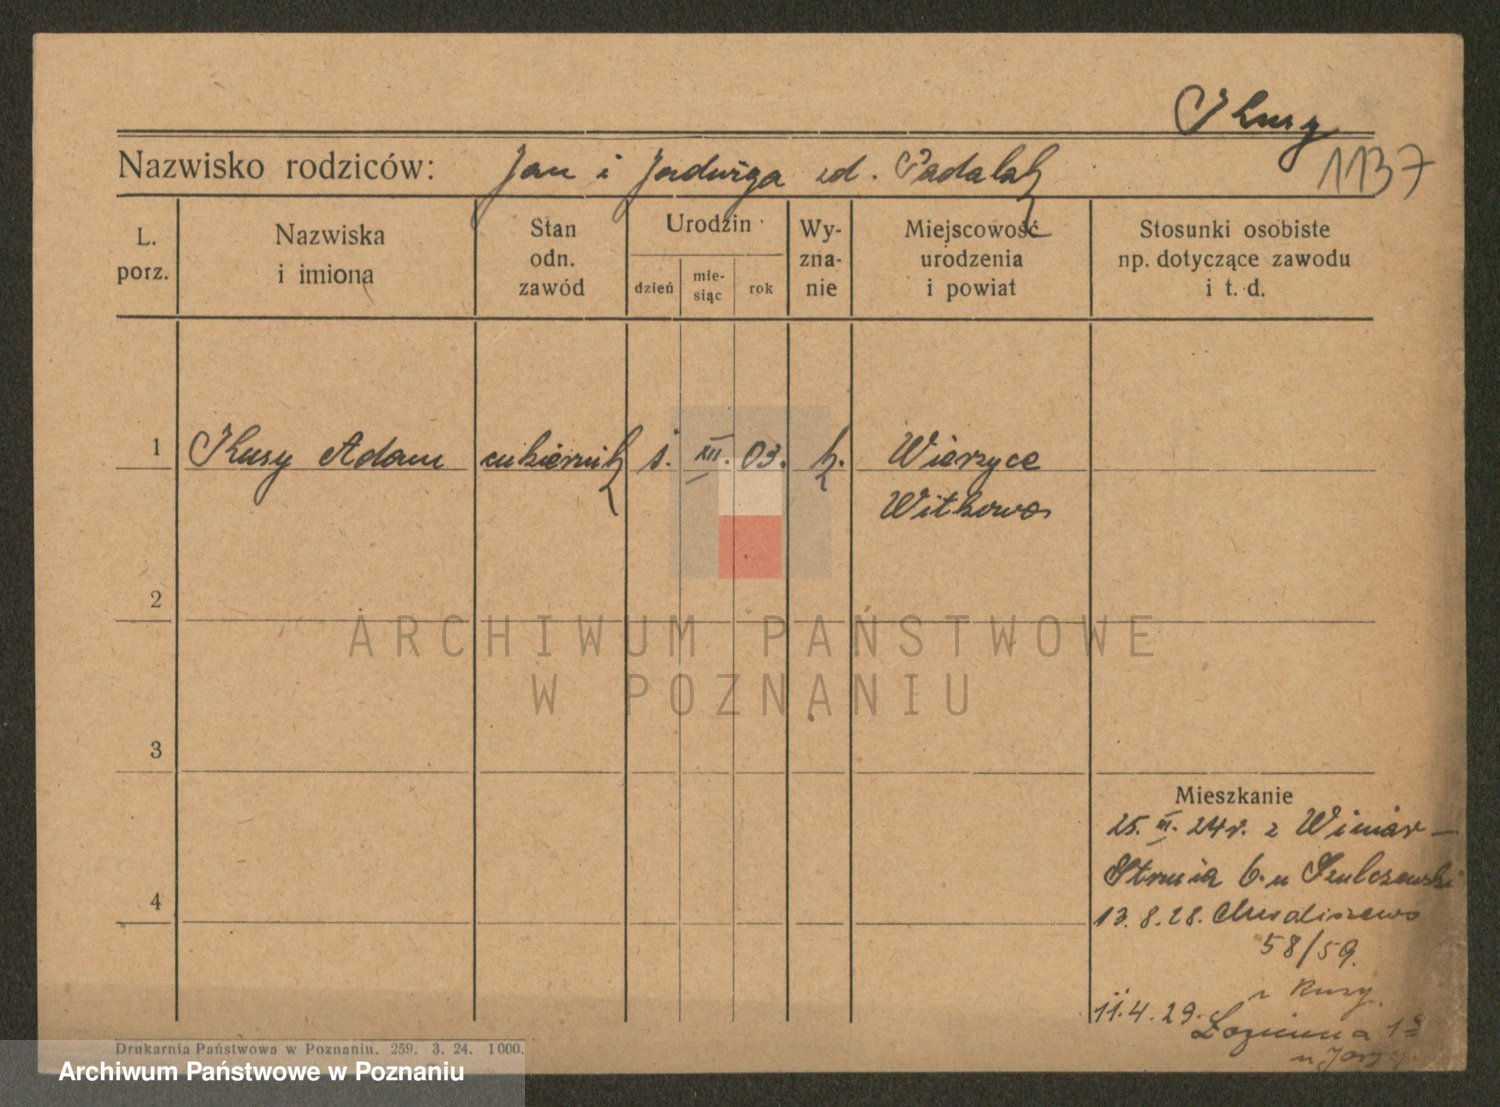 Kusy
Nazwisko rodziców: Jan i Jadwiga zd. Padalak
1137
L. porz.
Nazwiska i imiona
Stan odn. zawód
Urodzin
dzień
mie-
siąc
rok
Wy-
zna-
nie
Miejscowość urodzenia i powiat
Stosunki osobiste
np. dotyczące zawodu
i t. d.
1 Kusy Adam cukiernik XII. 03. k. Wierzyce
Witkowo
2
ARCHIWUM PAŃSTWOWE
W POZNANIU
3
Mieszkanie
25. III. 24 r. z Winiar –
6. u Szulczewski
4
13.8.28.
58/59.
Kusy
11.4.29.
u
Drukarnia Państwowa w Poznaniu. 259. 3. 24. 1000.
Archiwum Państwowe w Poznaniu